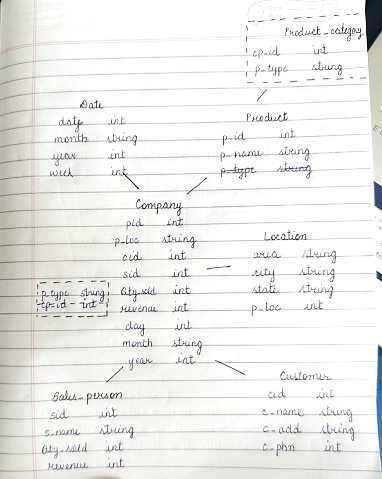 Product_category
cp-id int
p-type string
Date
date int
month string
year int
week int
Product
p-id int
p-name string
p-type string
Company
pid int
p-loc string
cid int
sid int
Qty-sold int
revenue int
day int
month string
year int
Location
area string
city string
state string
p-loc int
p type string
cp-id - int
Sales-person
sid int
s-name string
Qty-sold int
revenue int
Customer
cid int
c-name string
c-add string
c-phn int